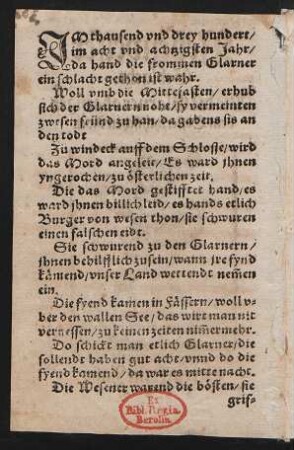 IM thausend vnd drey hundert/
im acht vnd achtzigsten Jahr/
da hand die frommen Glarner
ein schlacht gethon ist wahr.
Woll vmb die Mittefasten/ erhub
sich der Glarnern noht/ sy vermeinten
zwesen feünd zu han/ da gabens sis an
den todt
Zu windeck auff dem Schlosse/ wird
das Mord angeleit/ Es ward jhnen
yngerochen/ zu österlichen zeit.
Die das Mord gestifftet hand/ es
ward jhnen billich leid/ es hands etlich
Burger von wesen thon/ sie schwuren
einen falschen eidt.
Sie schwurend zu den Glarnern/
jhnen behilfflich zu sein/ wann jre fynd
kämend/ vnser Land wettendt nem̃en
ein.
Die fyend kamen in Fässern/ woll v-
ber den wallen See/ das wirt man nit
vergessen/ zu keinen zeiten nim̃ermehr.
Do schickt man etlich Glarner/ die
sollendt haben gut acht/ vnnd do die
fyend kamend/ da war es mitte nacht.
Die Wesener warend die bösten/ sie
grif-
Ex
Bibl. Regia
Berolin.